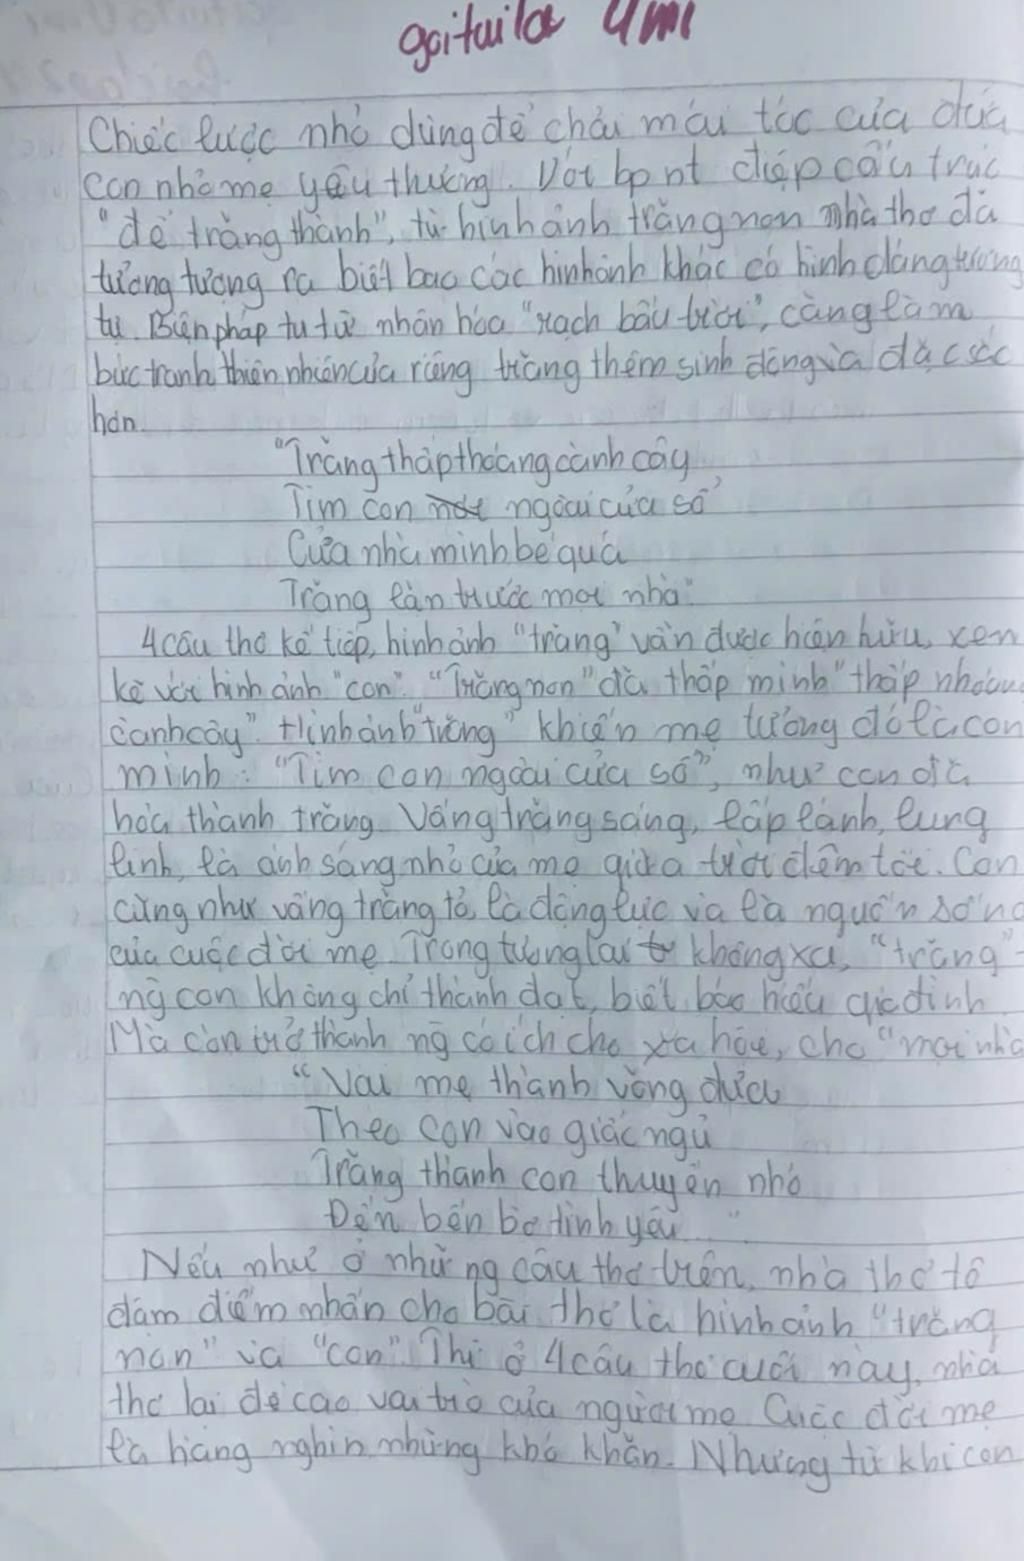 goituila Umi
Chiếc lược nhỏ dùng để chải mái tóc của đứa
con nhỏ mẹ yêu thương. Với bpnt điệp cấu trúc
"để trăng thành", từ hình ảnh trăng non nhà thơ đã
tưởng tượng ra biết bao các hình ảnh khác có hình dáng tương
tự. Biện pháp tu từ nhân hóa "rạch bầu trời", càng làm
bức tranh thiên nhiên của riêng trăng thêm sinh động và đặc sắc
hơn.
"Trăng thấp thoáng cành cây
Tìm con ngoài cửa sổ
Cửa nhà mình bé quá
Trăng lặn trước mọi nhà"
4 câu thơ kế tiếp, hình ảnh "trăng" vẫn được hiện hữu, xen
kẽ với hình ảnh "con". "Trăng non" đã thấp mình "thấp nhoáng
cành cây". Hình ảnh "trăng" khiến mẹ tưởng đó là con
mình: "Tìm con ngoài cửa sổ", như con đã
hóa thành trăng. Vầng trăng sáng, lấp lánh, lung
linh, là ánh sáng nhỏ của mẹ giữa trời đêm tối. Con
cũng như vầng trăng tỏ, là động lực và là nguồn sống
của cuộc đời mẹ. Trong tương lai không xa, "trăng"
ng con không chỉ thành đạt, biết báo hiếu gia đình.
Mà còn trở thành ng có ích cho xã hội, cho "mọi nhà
"Vai mẹ thành võng đưa
Theo con vào giấc ngủ
Trăng thành con thuyền nhỏ
Đến bến bờ tình yêu"
Nếu như ở những câu thơ trên, nhà thơ tô
đậm điểm nhấn cho bài thơ là hình ảnh "trăng
non" và "con". Thì ở 4 câu thơ cuối này, nhà
thơ lại đề cao vai trò của người mẹ. Cuộc đời mẹ
là hàng nghìn những khó khăn. Nhưng từ khi con